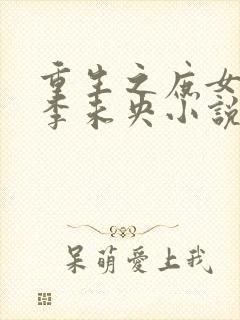 重生之庶女
李未央小說
呆萌愛上我